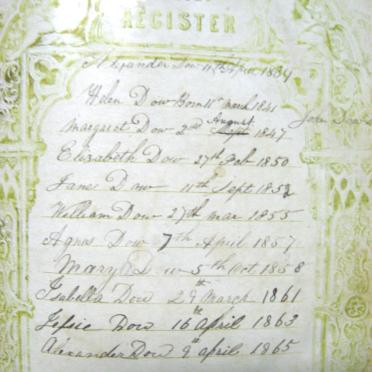 REGISTER
Alexander Dow 11th 1839
Helen Dow Born 11th march 1841
Margaret Dow 2nd August 1847
John Dow
Elizabeth Dow 27th Feb 1850
James Dow 11th Sept 1852
William Dow 27th mar 1855
Agnes Dow 7th April 1857
Mary Dow 5th Oct 1858
Isabella Dow 29th March 1861
Jessie Dow 16th april 1863
Alexander Dow 9th april 1865